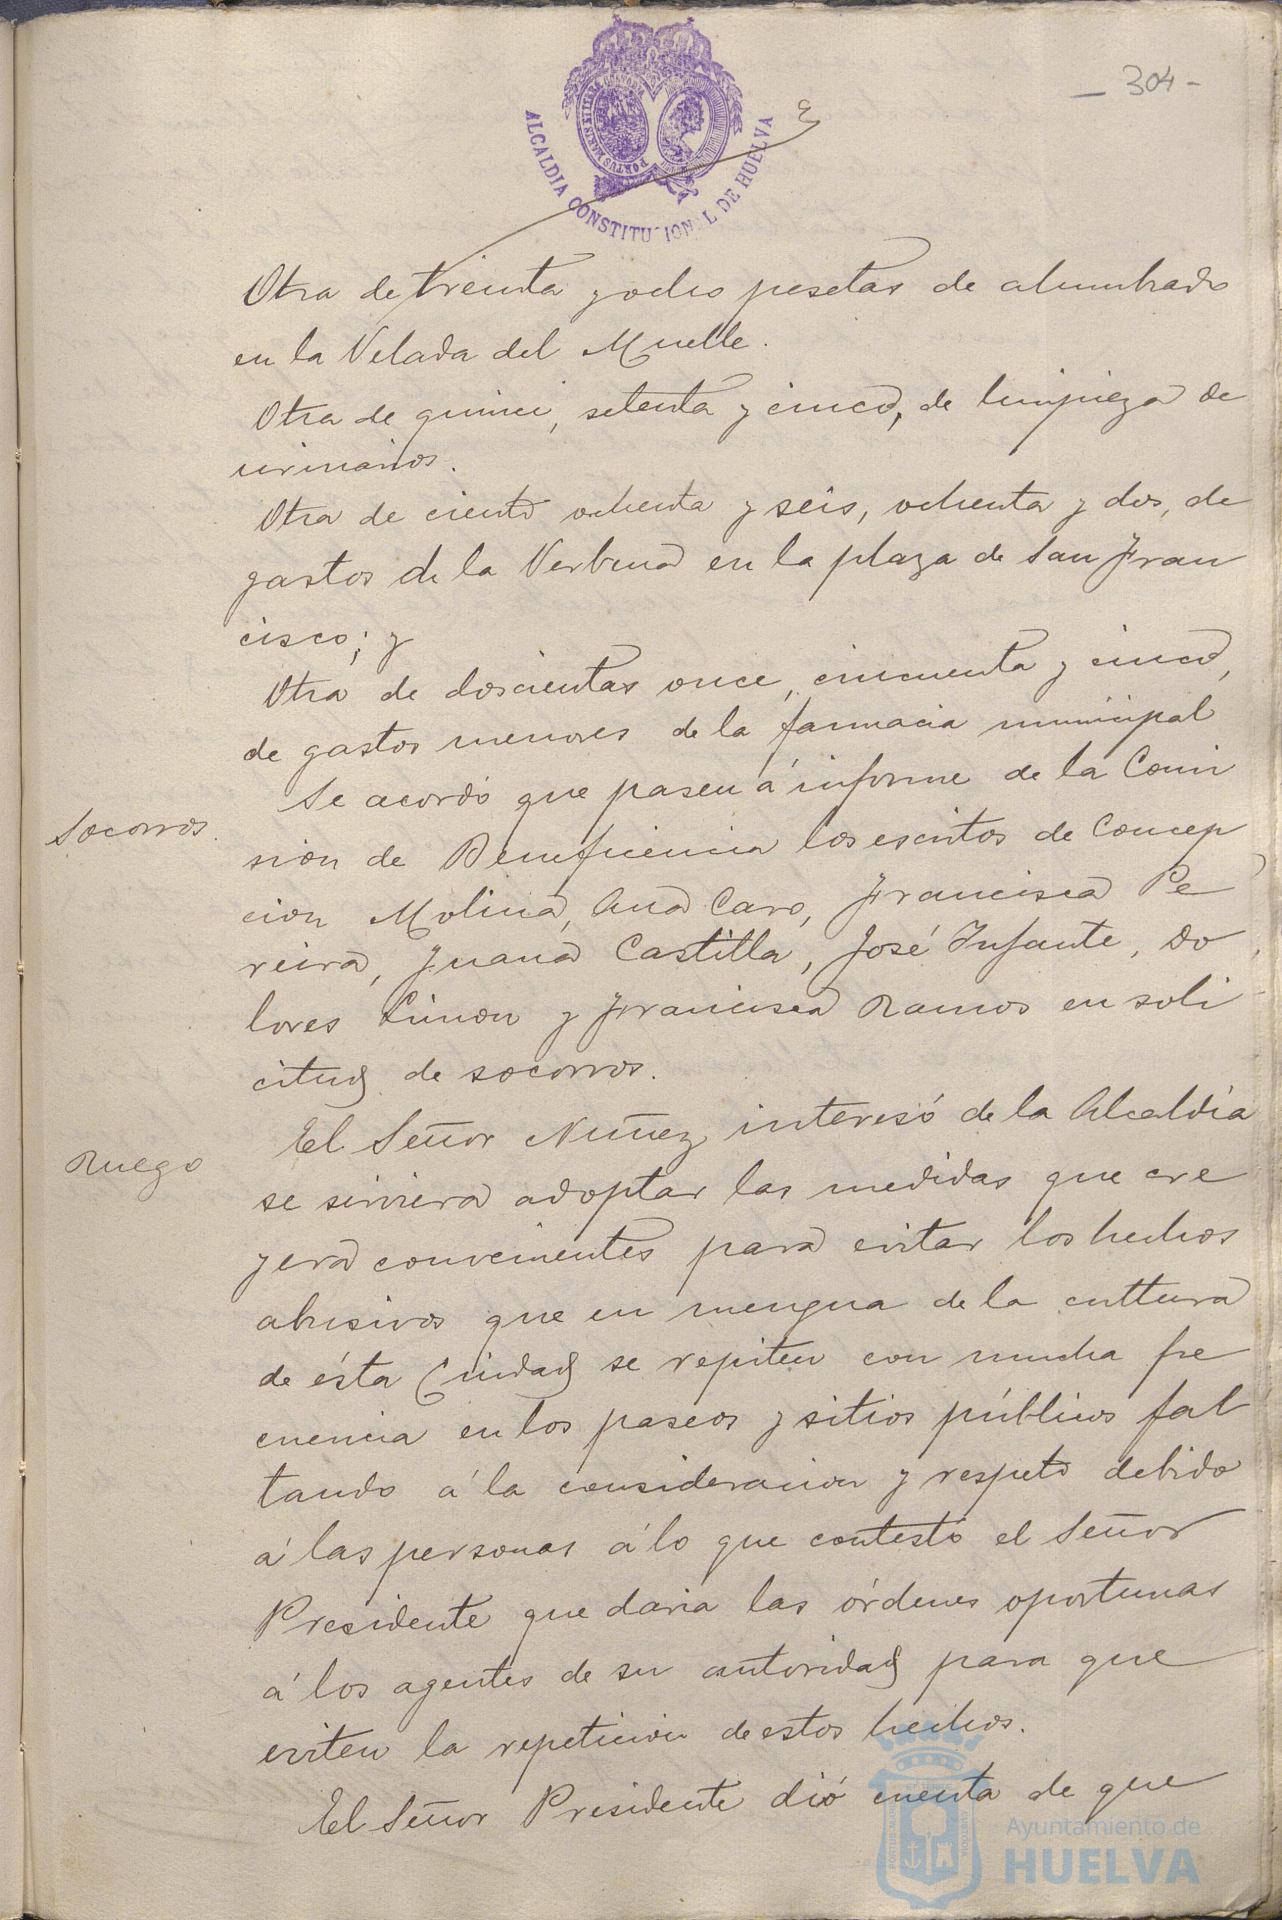 - 304 -
ALCALDIA CONSTITUCIONAL DE HUELVA
PORTUS MARIS ET TERRAE CUSTODIA
Otra de treinta y ocho pesetas de alumbrado
en la Velada del Muelle.
Otra de quince, setenta y cinco, de limpieza de
urinarios.
Otra de ciento ochenta y seis, ochenta y dos, de
gastos de la Verbena en la plaza de San Fran
cisco; y
Otra de doscientas once, cincuenta y cinco,
de gastos menores de la farmacia municipal
Socorros.
Se acordó que pasen á informe de la Comi
sion de Beneficencia los escritos de Concep
cion Molina, Ana Caro, Francisca Pe
reira, Juana Castilla, José Infante, Do
lores Limon y Francisca Ramos en soli
citud de socorros.
Ruego
El Señor Nuñez interesó de la Alcaldía
se sirviera adoptar las medidas que cre
yera convenientes para evitar los hechos
abusivos que en mengua de la cultura
de ésta Ciudad se repiten con mucha fre
cuencia en los paseos y sitios públicos fal
tando á la consideracion y respeto debido
á las personas á lo que contestó el Señor
Presidente que daria las órdenes oportunas
á los agentes de su autoridad para que
eviten la repeticion de estos hechos.
El Señor Presidente dió cuenta de que
Ayuntamiento de
HUELVA